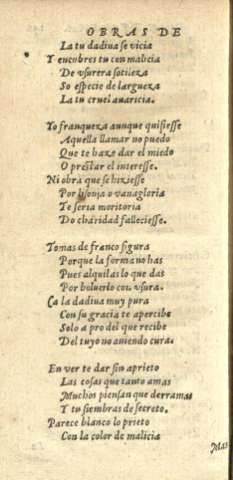 OBRAS DE
La tu dadiua se vicia
Y encubres tu con malicia
De vsurera sotileza
So especie de largueza
La tu cruel auaricia.
Yo franqueza aunque quisiesse
Aquella llamar no puedo
Que te haze dar el miedo
O prestar el interesse.
Ni obra que se hiziesse
Por lisonja o vanagloria
Te seria meritoria
Do charidad falleciesse.
Tomas de franco figura
Porque la forma no has
Pues alquilas lo que das
Por boluerlo con vsura.
Ca la dadiua muy pura
Con su gracia te apercibe
Solo a pro del que recibe
Del tuyo no auiendo cura.
En ver te dar sin aprieto
Las cosas que tanto amas
Muchos piensan que derramas
Y tu siembras de secreto.
Parece blanco lo prieto
Con la color de malicia
Mas